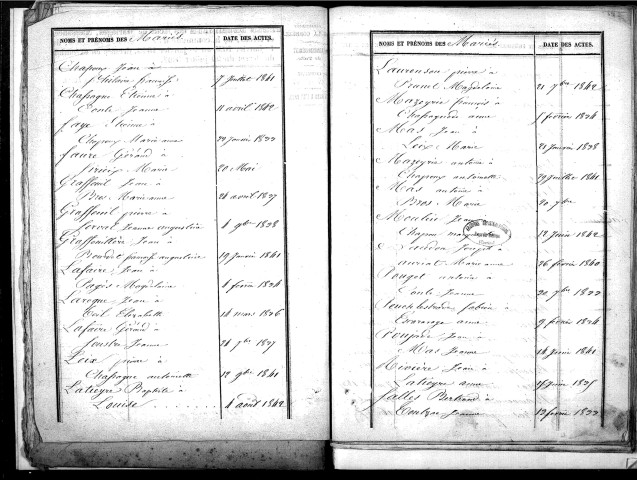 NOMS ET PRÉNOMS DES Mariés DATE DES ACTES.
Chapoux Jean à
françse 7 Juillet 1841
Chassagne Etienne à
Jeanne 11 avril 1842
faye Etienne à
Chapoux Marie anne janvier 1833
faure Gérard à
Marie 20 Mai
Graffouil Jean à
Bros Marie anne 26 avril 1837
Graffouil pierre à
Jeanne augustine 6 9bre 1838
Graffouillère Jean à
françse augustine 19 Janvier 1841
Lafaire Jean à
Pagès Magdelaine 4 février 1834
Laroque Jean à
Elisabeth 14 mars 1836
Lafaire Gérard à
Jeanne 26 7bre 1837
Loix pierre à
Chassagne antoinette 12 9bre 1841
Latieyre Baptiste à
Louise 4 août 1842
NOMS ET PRÉNOMS DES Mariés DATE DES ACTES.
Laurenson pierre à
Magdelaine 21 7bre 1842
Mazeyrie françois à
Chassagnade anne février 1834
Mas Jean à
Loix Marie 21 janvier 1838
Mazeyrie antoine à
Chapoux antoinette 29 Juillet 1841
Mas antoine à
Bros Marie 20 7bre
Moulin Jean à
Chapoux 12 Juin 1842
Joseph à
Marie anne 26 février 1840
Pouget antoine à
Jeanne 20 7bre 1833
fabien à
anne 9 février 1834
Poujade Jean à
Mas Jeanne 14 1841
Rivière Jean à
Latieyre anne 1835
Salles Bertrand à
Jeanne 12 février 1833